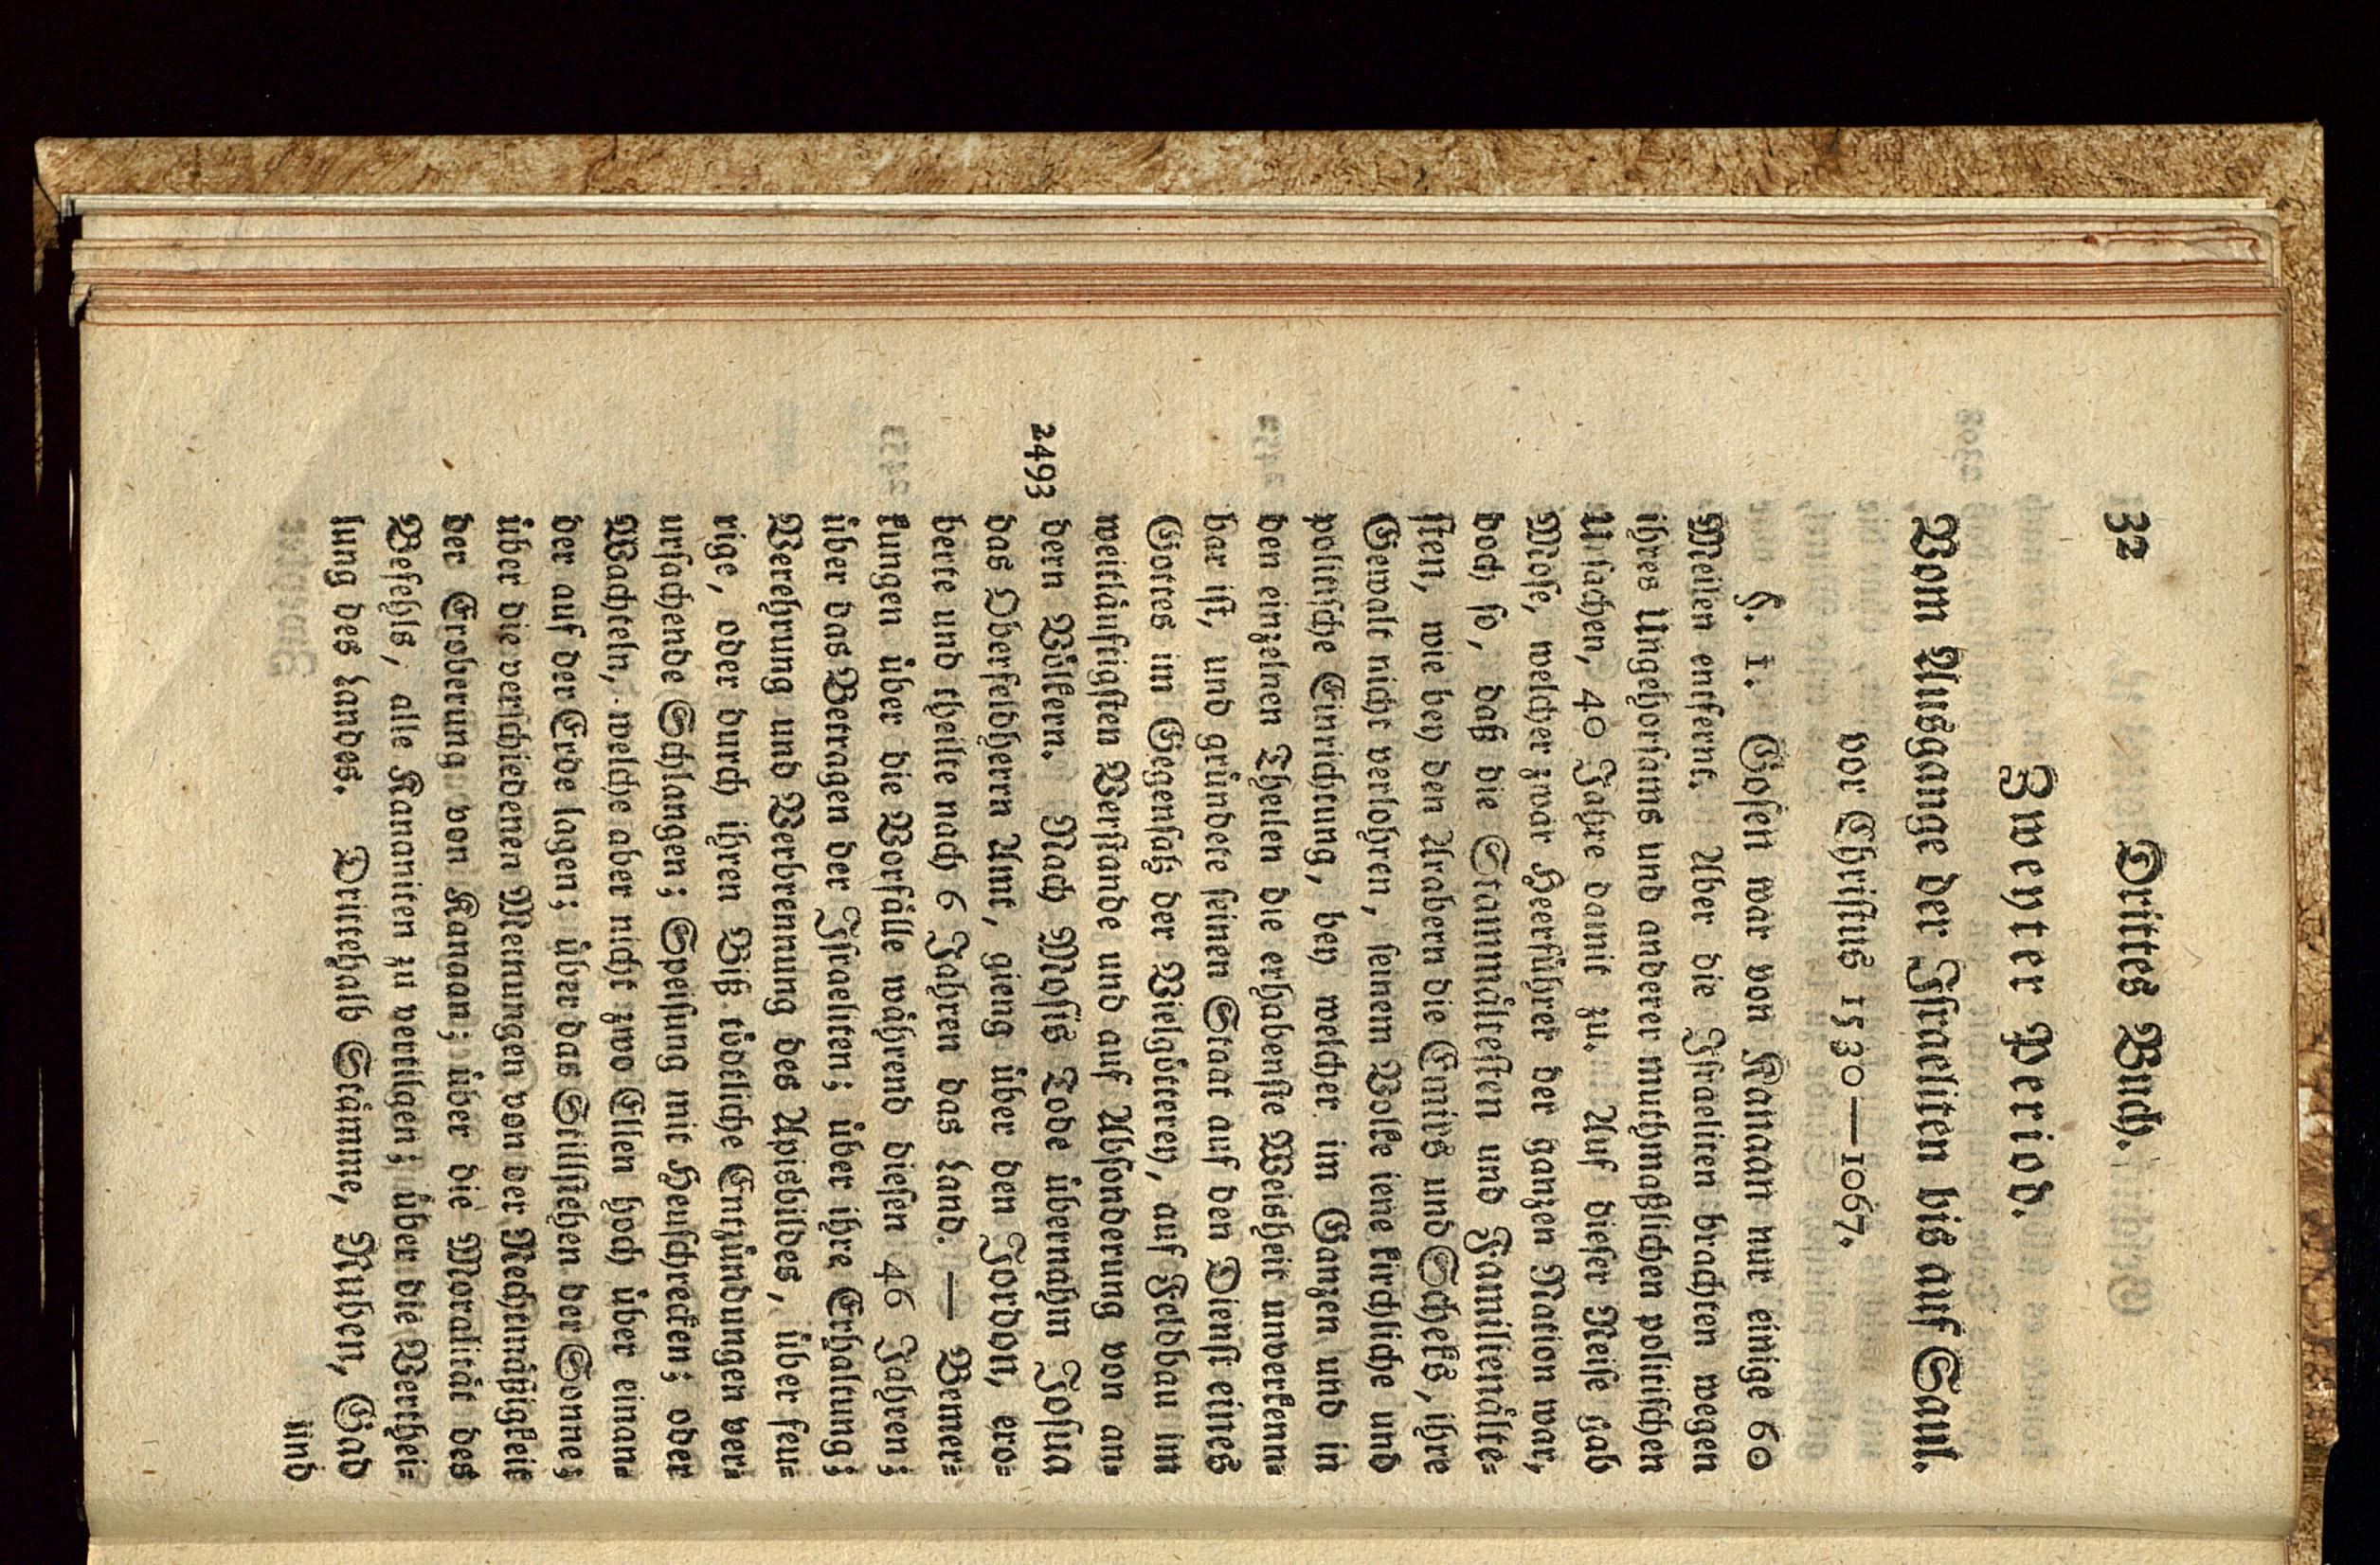 32 Drittes Buch.
Zweyter Period.
Vom Ausgange der Israeliten bis auf Saul.
vor Christus 1530—1067.
§. 1. Gosen war von Kanaan nur einige 60
Meilen entfernt. Aber die Israeliten brachten wegen
ihres Ungehorsams und anderer muthmaßlichen politischen
Ursachen, 40 Jahre damit zu. Auf dieser Reise gab
Mose, welcher zwar Heerführer der ganzen Nation war,
doch so, daß die Stammältesten und Familienälte-
sten, wie bey den Arabern die Emirs und Scheks, ihre
Gewalt nicht verlohren, seinem Volke iene kirchliche und
politische Einrichtung, bey welcher im Ganzen und in
den einzelnen Theilen die erhabenste Weisheit unverkenn-
bar ist, und gründete seinen Staat auf den Dienst eines
Gottes im Gegensatz der Vielgötterey, auf Feldbau im
weitläuftigsten Verstande und auf Absonderung von an-
2493 dern Völkern. Nach Mosis Tode übernahm Josua
das Oberfeldherrn Amt, gieng über den Jordan, ero-
berte und theilte nach 6 Jahren das Land. — Bemer-
kungen über die Vorfälle während diesen 46 Jahren;
über das Betragen der Israeliten; über ihre Erhaltung;
Verehrung und Verbrennung des Apisbildes, über feu-
rige, oder durch ihren Biß tödtliche Entzündungen ver-
ursachende Schlangen; Speisung mit Heuschrecken; oder
Wachteln, welche aber nicht zwo Ellen hoch über einan-
der auf der Erde lagen; über das Stillstehen der Sonne;
über die verschiedenen Meinungen von der Rechtmäßigkeit
der Eroberung von Kanaan; über die Moralität des
Befehls, alle Kananiten zu vertilgen; über die Verthei-
lung des Landes. Drittehalb Stämme, Ruben, Gad
und